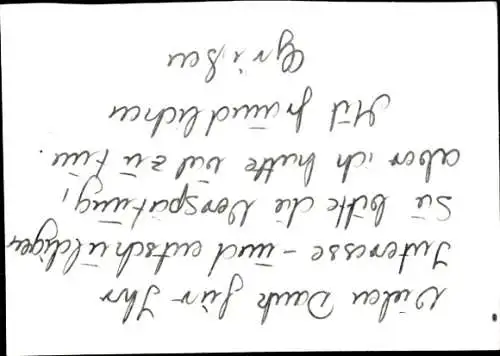 Vielen Dank für Ihr
Interesse - und entschuldigen
Sie bitte die Verspätung,
aber ich hatte viel zu tun.
Mit freundlichen
Grüßen